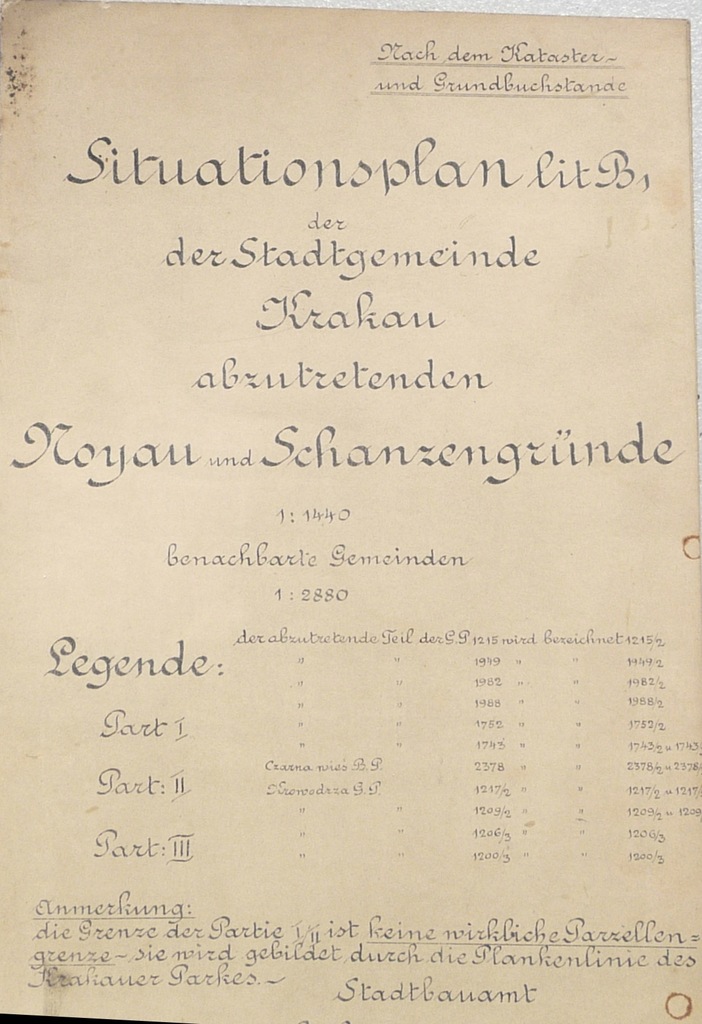 Nach dem Kataster-
und Grundbuchstande
Situationsplan lit B,
der
der Stadtgemeinde
Krakau
abzutretenden
Noyau und Schanzengründe
1 : 1440
benachbarte Gemeinden
1 : 2880
Legende:
der abzutretende Teil der G.P. 1215 wird bezeichnet 1215/2
" " 1949 " " 1949/2
" " 1982 " " 1982/2
" " 1988 " " 1988/2
Part I
" " 1752 " " 1752/2
" " 1743 " " 1743/2 u 1743
Part: II
Czarna wieś B.P. 2378 " " 2378/2 u 2378/
Krowodrza G.P. 1217/2 " " 1217/2 u 1217/
" " 1209/2 " " 1209/2 u 1209
Part: III
" " 1206/3 " " 1206/3
" " 1200/3 " " 1200/3
Anmerkung:
die Grenze der Partie I/II ist keine wirkliche Parzellen=
grenze - sie wird gebildet durch die Plankenlinie des
Krakauer Parkes. -
Stadtbauamt